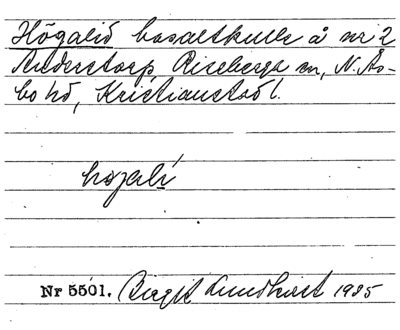 Högalid basaltkulle å nr 2
Anderstorp Riseberga sn, N. Ås-
bo hd, Kristianstad l.
högalí
Nr 5501. Birgit Lundkvist 1935